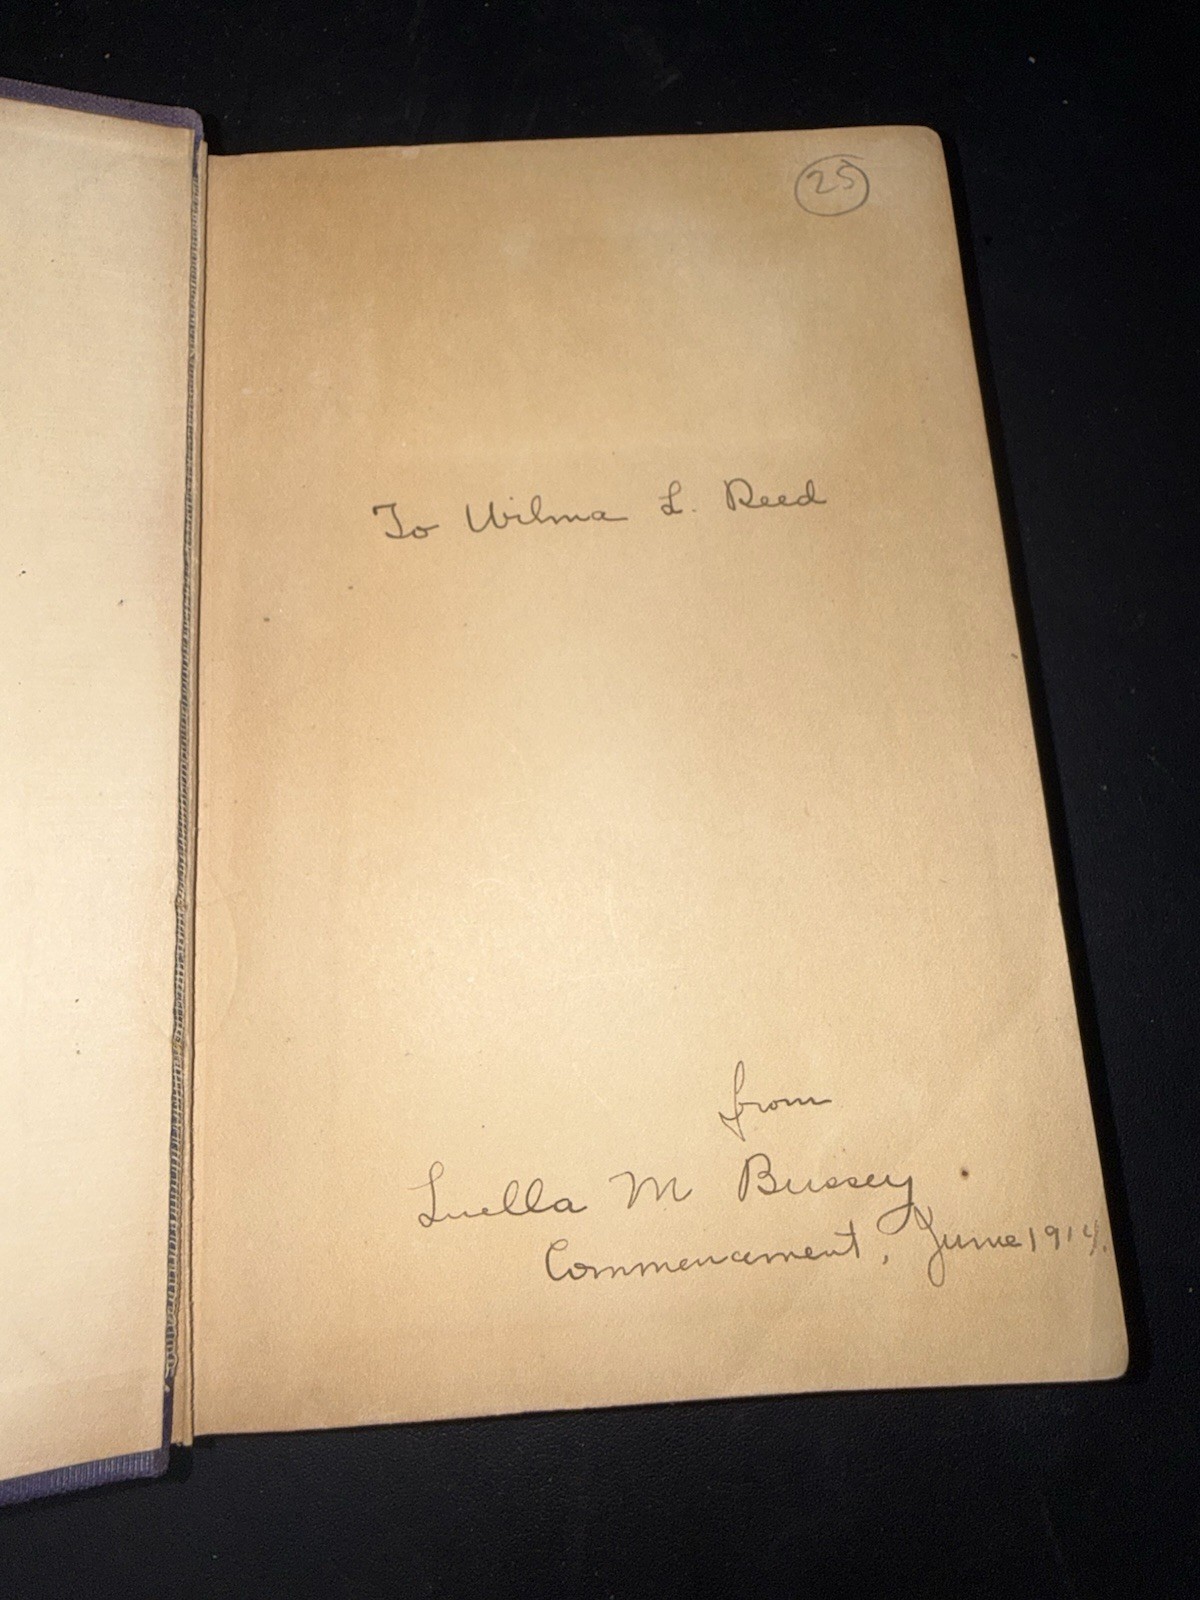 25
To Wilma L. Reed
from
Luella M Bussey
Commencement, June 1914.